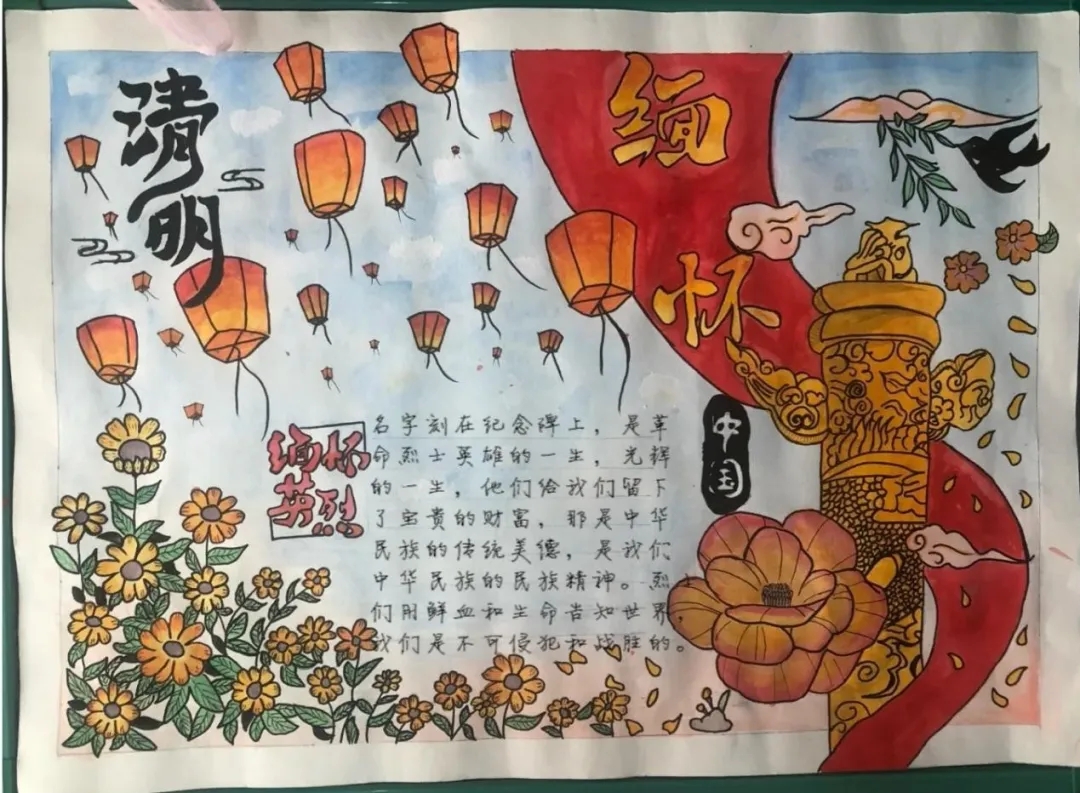 清明
缅怀
中国
缅怀
英烈
名字刻在纪念碑上，是革
命烈士英雄的一生，光辉
的一生，他们给我们留下
了宝贵的财富，那是中华
民族的传统美德，是我们
中华民族的民族精神。烈士
们用鲜血和生命告知世界，
我们是不可侵犯和战胜的。